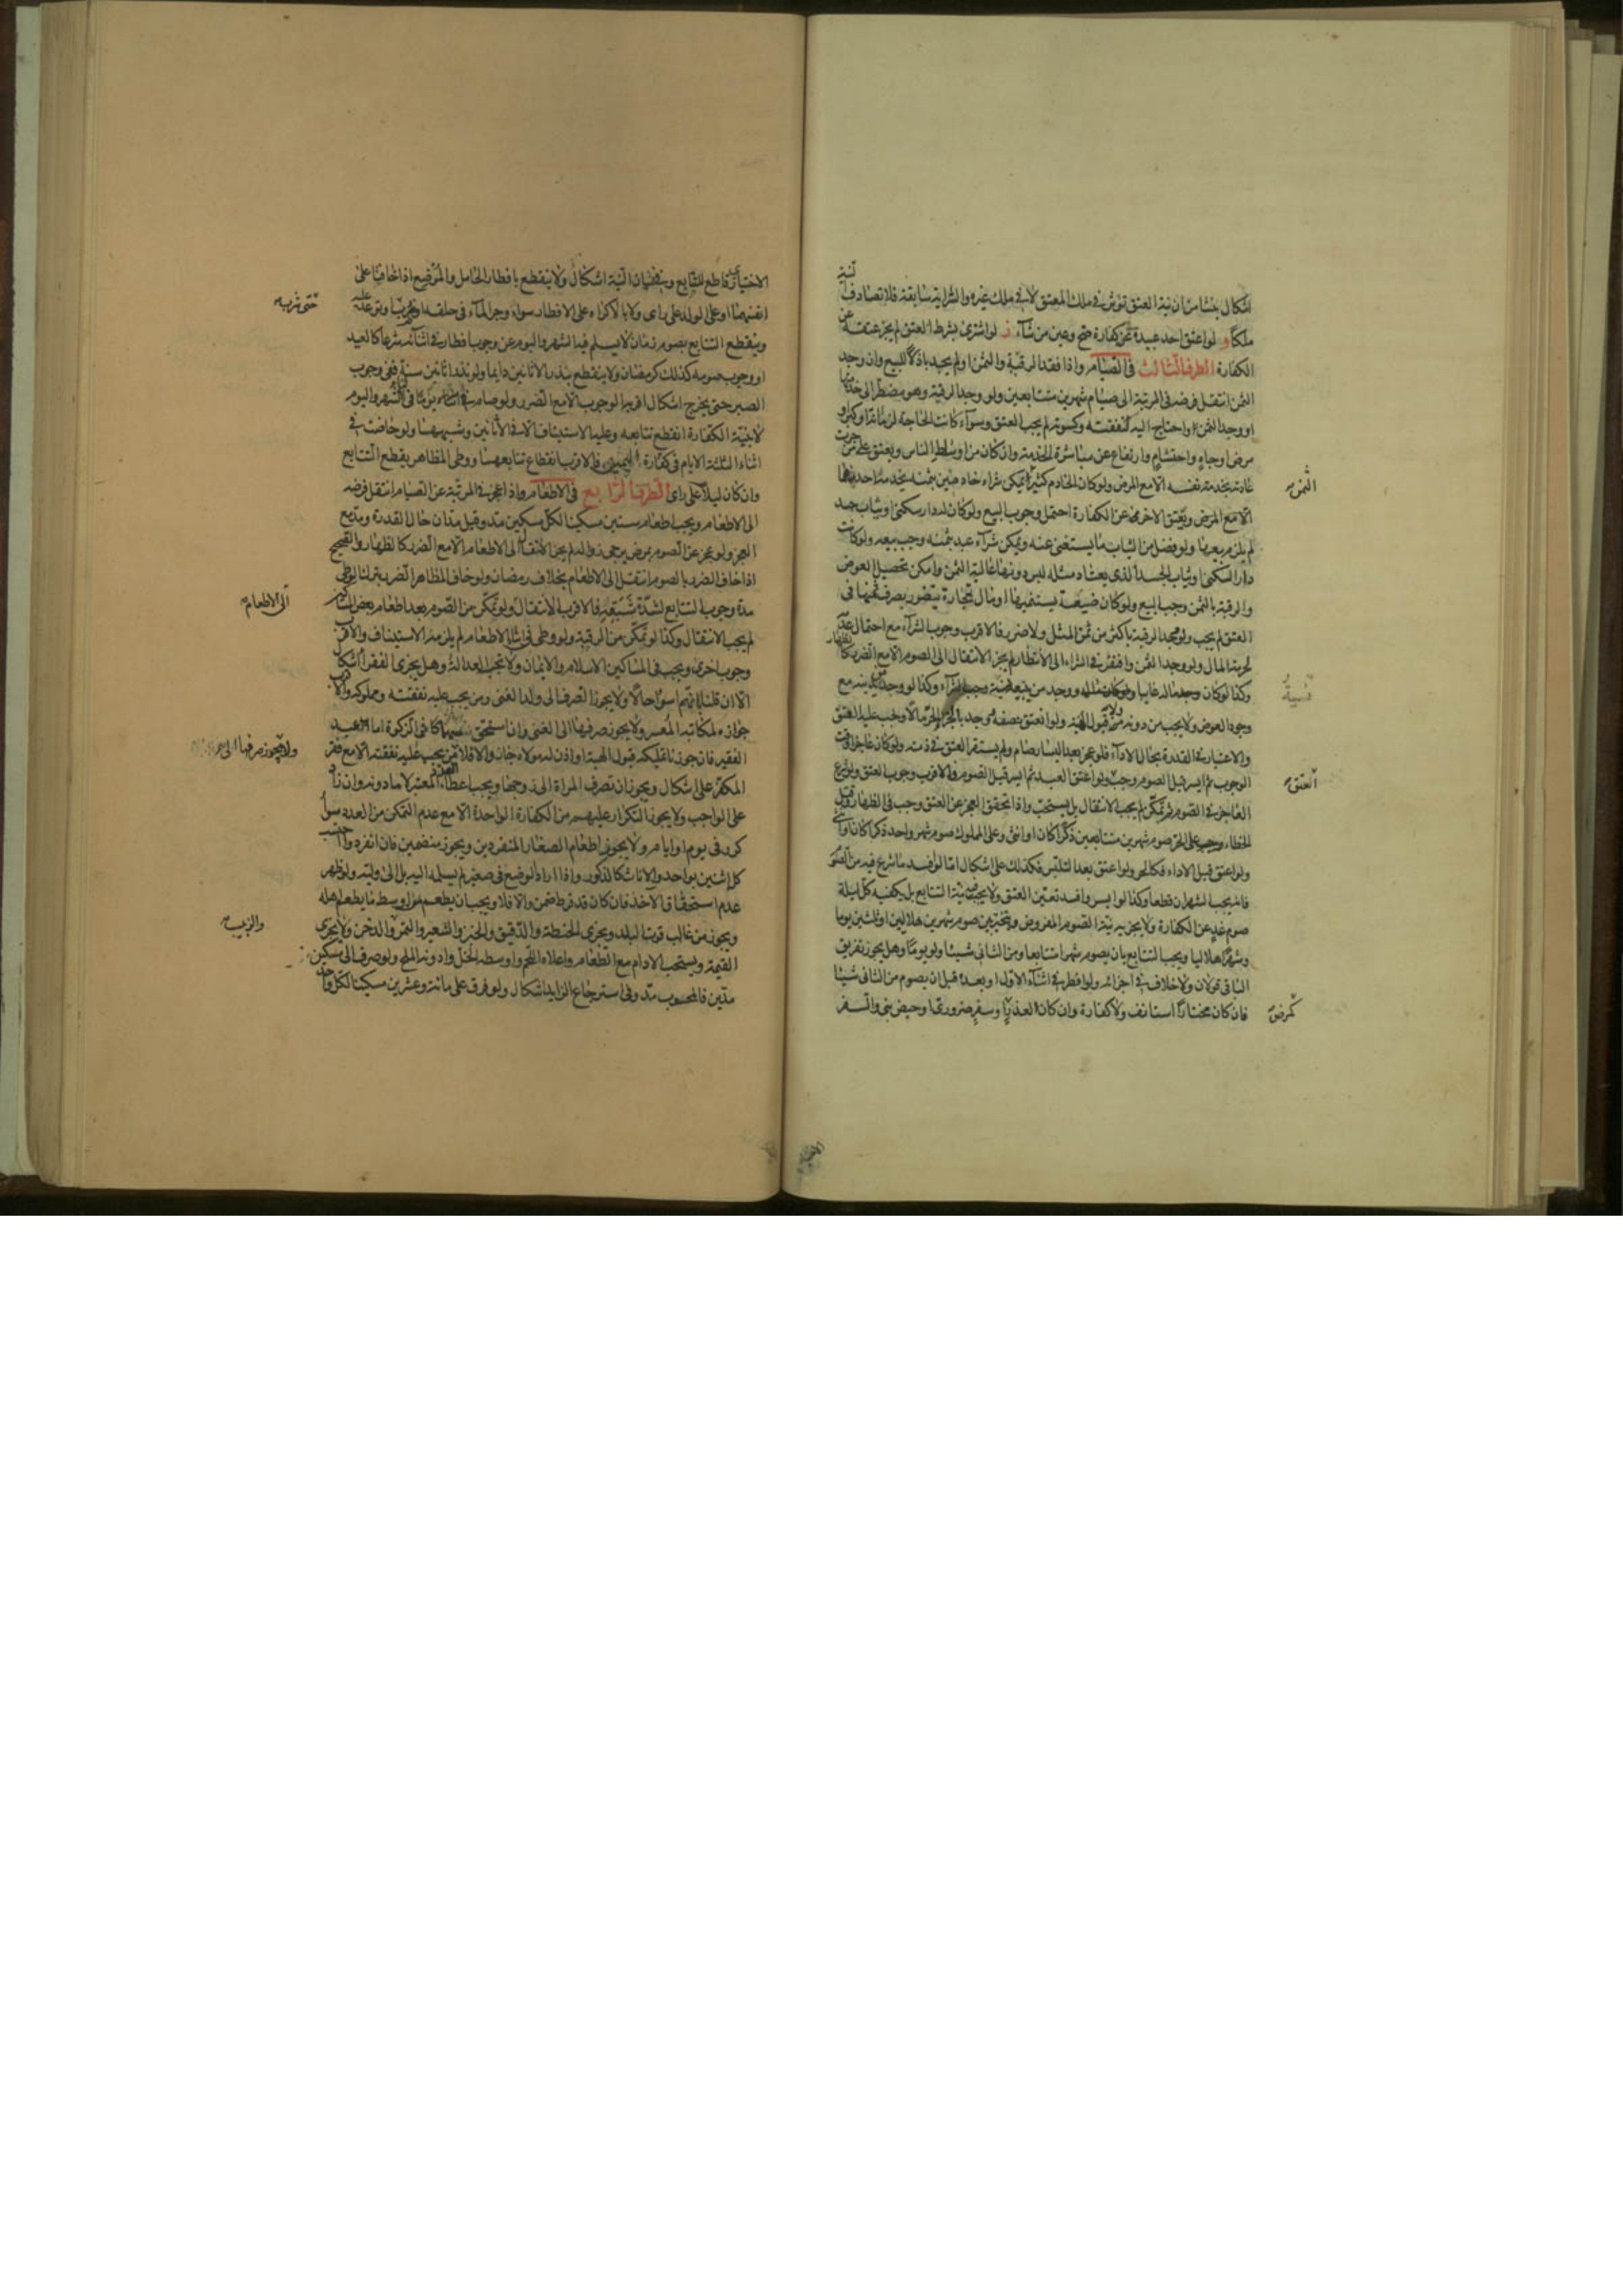 اشكال ينشا من ان نية العتق تؤثر في ملك المعتق لا في ملك غيره والسراية سابقة فلا تصادف النية
ملكا و لو اعتق احد عبيده عن كفارة صح وعين من شاء ز لو اشترى بشرط العتق لم يجز عتقه عن
الكفارة الطرف الثالث في الصيام واذا فقد الرقبة والثمن او لم يجد باذلا للبيع وان وجد
الثمن انتقل فرضه في المرتبة الى صيام شهرين متتابعين ولو وجد الرقبة وهو مضطر الى خدمتها
او وجد الثمن واحتاج اليه لنفقته وكسوته لم يجب العتق وسواء كانت الحاجة لزمانة او كبر او
مرض او جاه واحتشام وارتفاع عن مباشرة الخدمة وان كان من اوساط الناس ويعتق على من جرت
عادته بخدمة نفسه الا مع المرض ولو كان الخادم كثير الثمن يمكن شراء خادمين بثمنه يخدمه احدهما
الثمن
ويعتق الاخر عن الكفارة احتمل وجوب البيع ولو كان له دار سكنى او ثياب جسد
لم يلزم بيعها ولو فضل من الثياب ما يستغنى عنه ويمكن شراء عبد بثمنه وجب بيعه ولو كانت
دار السكنى او ثياب الجسد الذي يعتاد مثله لبس دونها غالية الثمن وامكن تحصيل العوض
والرقبة بالثمن وجب البيع ولو كان ضيعة يستنميها او مال تجارة يتضرر بصرف ثمنها في
العتق لم يجب ولو وجد الرقبة باكثر من ثمن المثل ولا ضرر فالاقرب وجوب الشراء مع احتمال عدمه
لحرمة المال ولو وجد الثمن وافتقر في الشراء الى الانتظار لم يجز الانتقال الى الصوم الا مع الضرر كالظهار
وكذا لو كان ماله غايبا ووجد من يبيعه نسية وجب الشراء وكذا لو وجد من يدينه مع
نسية
وجود العوض ولا يجب من دونه ولا قبول الهبة ولو انعتق نصفه ووجد بالجزء الحر مالا وجب عليه العتق
والاعتبار في القدرة بحال الاداء فلو عجز بعد اليسار صام ولم يستقر العتق في ذمته ولو كان عاجزا وقت
الوجوب ثم ايسر قبل الصوم وجب العتق ولو اعتق العبد ثم ايسر قبل الصوم فالاقرب وجوب العتق ولو شرع
العتق
العاجز في الصوم ثم تمكن لم يجب الانتقال بل يستحب واذا تحقق العجز عن العتق وجب في الظهار وقتل
الخطاء على الحر صوم شهرين متتابعين ذكرا كان او انثى وعلى المملوك صوم شهر واحد ذكرا كان او انثى
ولو اعتق قبل الاداء فكالحر ولو اعتق بعد التلبس فكذلك على اشكال اما لو افسد ما شرع فيه من الصوم
فانه يجب الشهران قطعا وكذا لو ايسر وافسد تعين العتق ولا يجب نية التتابع بل يكفيه كل ليلة
صوم غد عن الكفارة ولا يجزيه نية الصوم المفروض ويتخير بين صوم شهرين هلاليين او ثلثين يوما
وشهرا هلاليا ويجب التتابع بان يصوم شهرا متتابعا ومن الثاني شيئا ولو يوما وهل يجوز تفريق
الباقي قولان ولا خلاف في اجزائه ولو افطر في اثناء الاول او بعده قبل ان يصوم من الثاني شيئا
فان كان مختارا استانف ولا كفارة وان كان لعذر كمرض او سفر ضروري او حيض بنى والسفر
كمرض
الاختياري قاطع للتتابع وفي نسيان النية اشكال ولا ينقطع بافطار الحامل والمرضع اذا خافتا على
انفسهما او على الولد على راى ولا بالاكراه على الافطار سواء وجر الماء في حلقه او ضرب او توعد عليه
حتى شربه
وينقطع التتابع بصوم زمان لا يسلم فيه الشهر واليوم عن وجوب افطار في اثنائه شرعا كالعيد
او وجوب صومه كذلك كرمضان ولا ينقطع بنذر الاثانين دايما ولو نذر اثانين سنة ففي وجوب
الصبر حتى يخرج اشكال اقربه الوجوب الا مع الضرر ولو صام في اثناء الشهر واليوم
لا بنية الكفارة انقطع تتابعه وعليه الاستيناف الا في الاثانين وشبههما ولو حاضت في
اثناء الثلثة الايام في كفارة اليمين فالاقرب انقطاع تتابعها ووطى المظاهر يقطع التتابع
وان كان ليلا على راى الطرف الرابع في الاطعام واذا عجز في المرتبة عن الصيام انتقل فرضه
الى الاطعام ويجب اطعام ستين مسكينا لكل مسكين مد وقيل مدان حال القدرة ومد مع
العجز ولو عجز عن الصوم بمرض يرجى زواله لم يجز الانتقال الى الاطعام الا مع الضرر كالظهار والصحيح
اذا خاف الضرر بالصوم انتقل الى الاطعام بخلاف رمضان ولو خاف المظاهر الضرر بترك الوطى
مدة وجوب التتابع لشدة شبقه فالاقرب الانتقال الى الاطعام ولو تمكن من الصوم بعد اطعام بعض المساكين
لم يجب الانتقال وكذا لو تمكن من الرقبة ولو وطى في اثناء الاطعام لم يلزمه الاستيناف والاقرب
وجوب اخرى ويجب في المساكين الاسلام والايمان ولا تجب العدالة وهل يجزى الفقراء اشكال
الا ان قلنا بانهم اسوا حالا ولا يجوز الصرف الى ولد الغنى ومن يجب عليه نفقته ومملوكه والاقرب
جوازه لمكاتبه المعسر ولا يجوز صرفها الى الغنى وان استحق سهما في الزكوة اما العبد
ولا يجوز صرفها الى
الفقير فان جوزنا تمليكه قبول الهبة او اذن له مولاه جاز والا فلا من يجب عليه نفقته الا مع فقر
المكفر على اشكال ويجوز ان تصرف المراة الى زوجها ويجب اعطاء العدد المعتبر لا ما دونه وان زاد
على الواجب ولا يجوز التكرار عليهم من الكفارة الواحدة الا مع عدم التمكن من العدد سواء
كرر في يوم او ايام ولا يجوز اطعام الصغار المنفردين ويجوز منضمين فان انفردوا احتسب
كل اثنين بواحد والاناث كالذكور واذا اراد الوضع في صغير لم يسلمه اليه بل الى وليه ولو ظهر
عدم استحقاق الآخذ فان كان قد فرط ضمن والا فلا ويجب ان يطعم من اوسط ما يطعم اهله
ويجوز من غالب قوت البلد ويجزى الحنطة والدقيق والخبز والشعير والتمر والدخن ولا يجزى
والزبيب
القيمة ويستحب الادام مع الطعام واعلاه اللحم واوسطه الخل وادونه الملح ولو صرف الى مسكين
مدين فالمحسوب مد وفي استرجاع الزايد اشكال ولو فرق على مائة وعشرين مسكينا لكل واحد